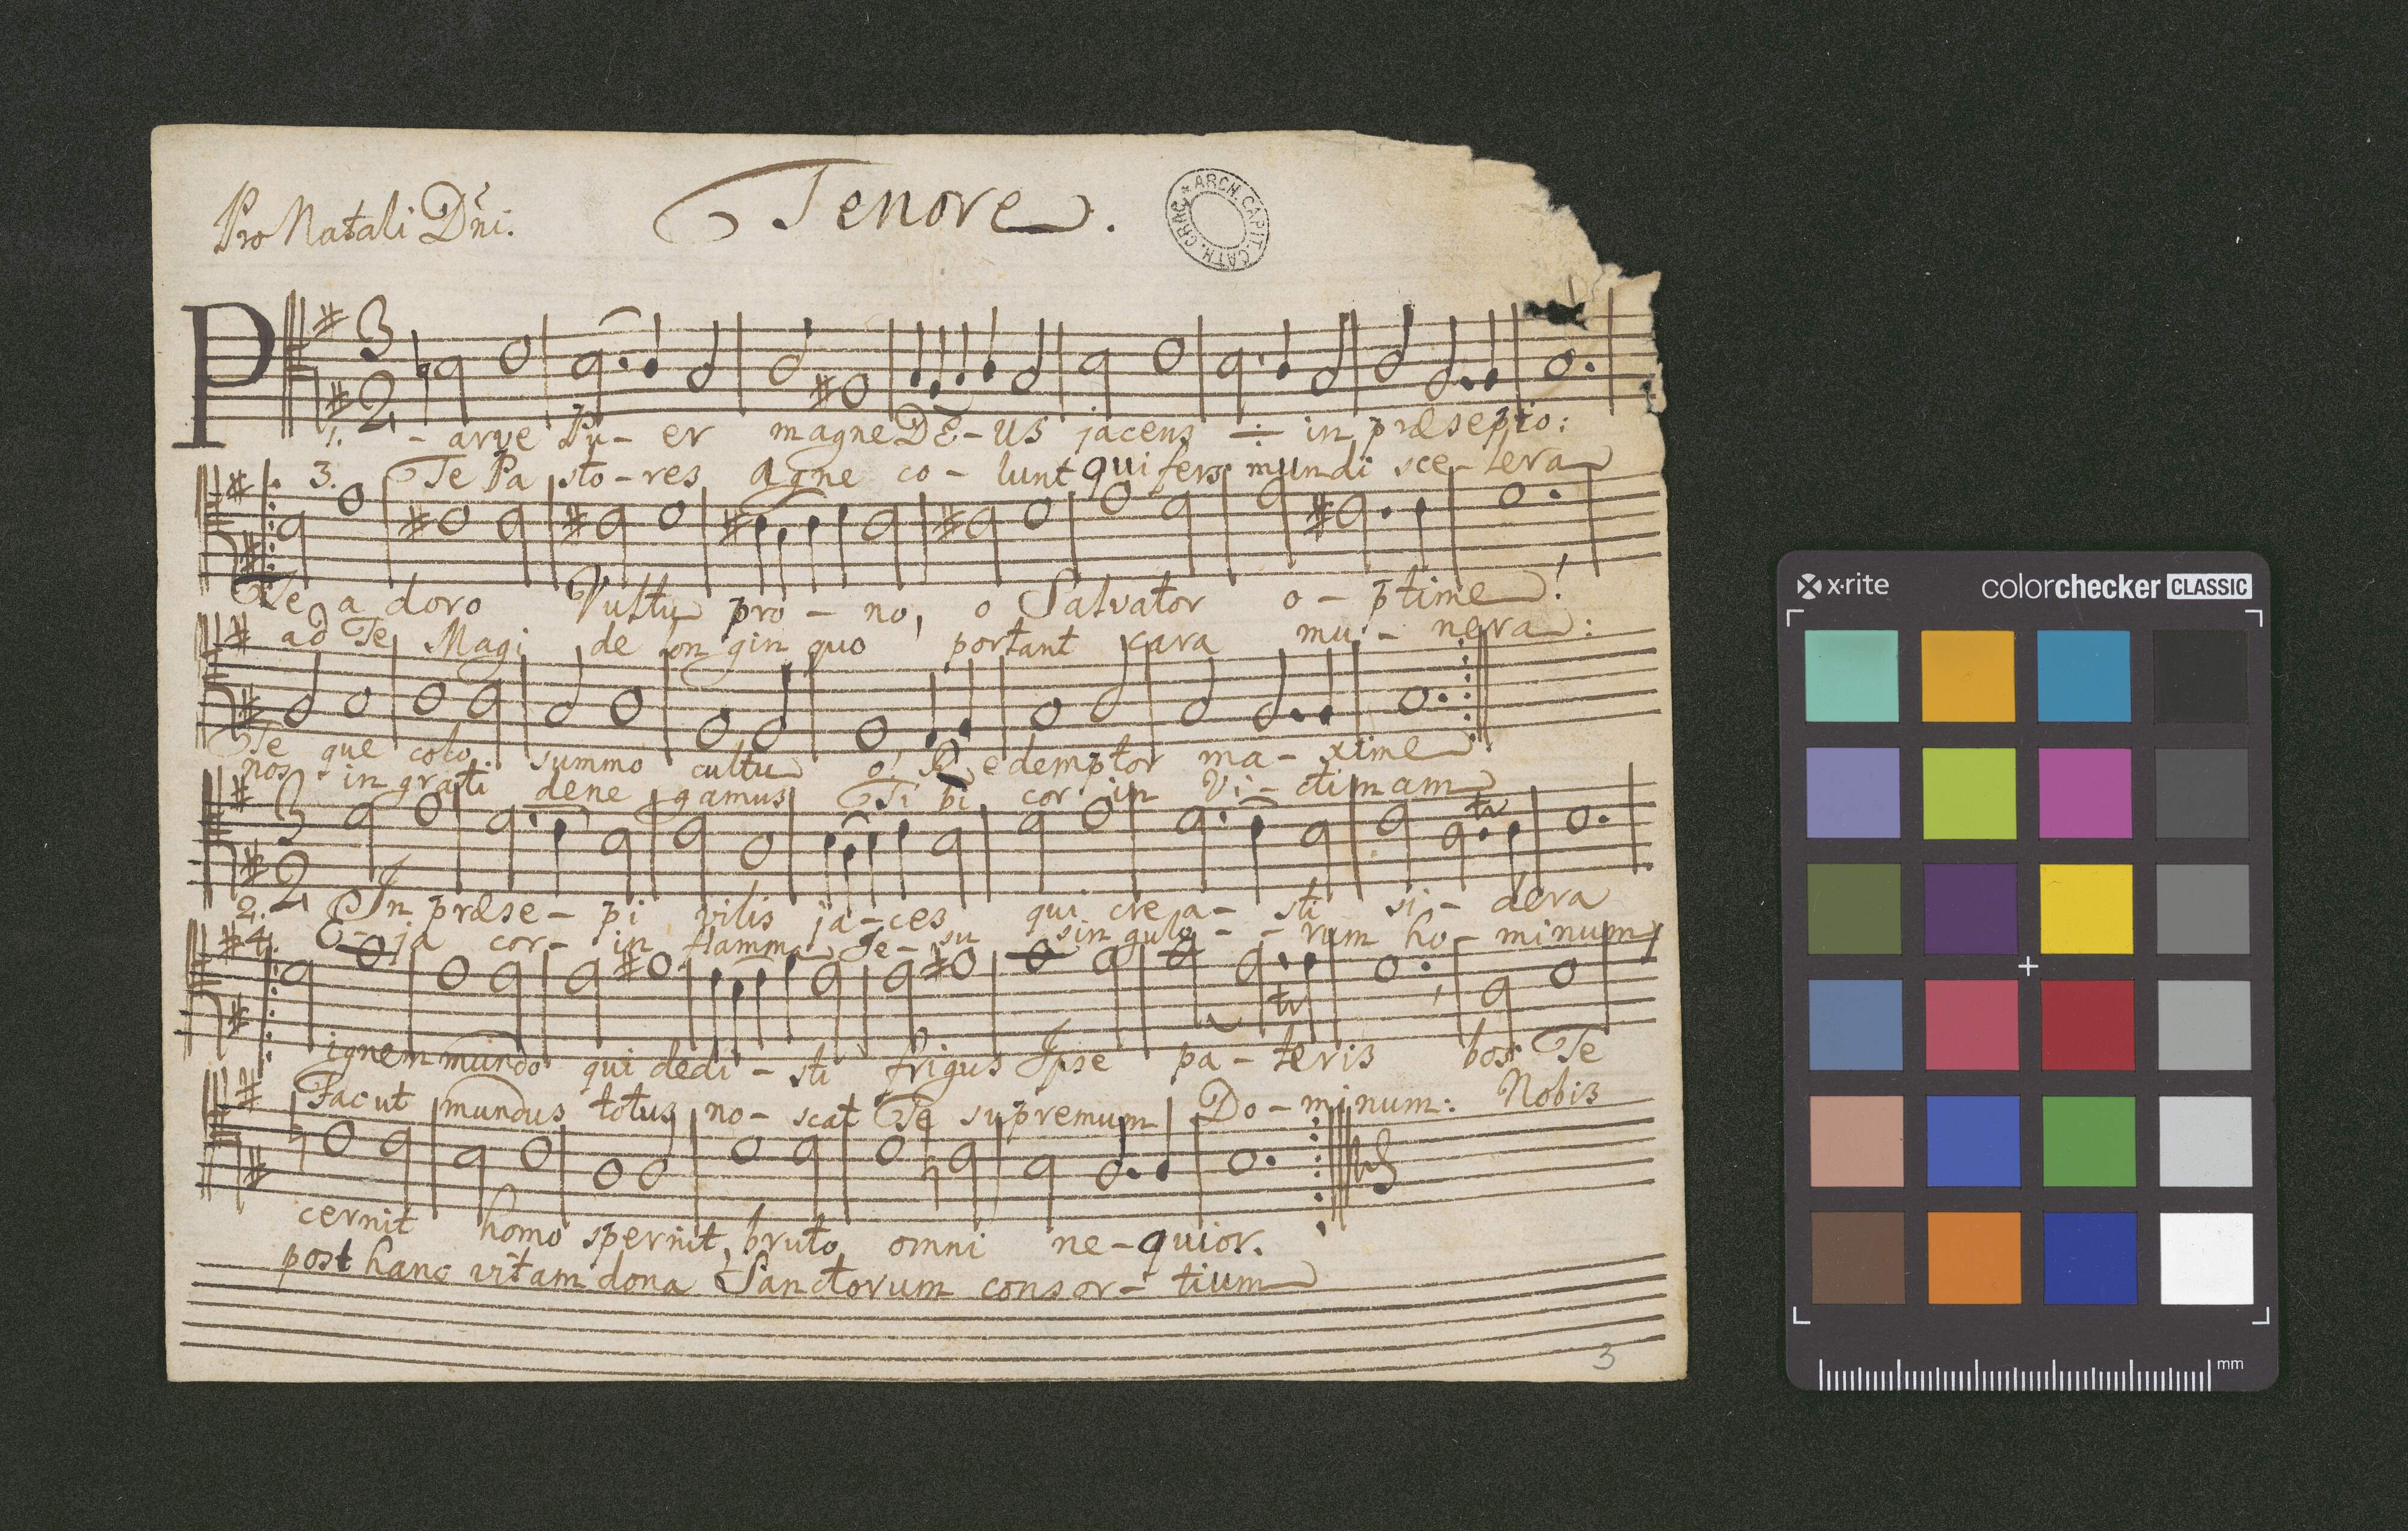 Pro Natali Dñi.
Tenore.
ARCH. CAPIT. CATH. CRAC.
3
2
P
1. - arve Pu - er magne DE - US jacens ÷ in præsepio:
3. Te Pa sto - res agne co - lunt qui fers mundi sce - lera
Te a doro Vultu pro - no, o Salvator o - ptime!
ad Te Magi de lon gin quo portant cara mu - nera:
Te que colo summo cultu o! Redemptor ma - xime
nos in grati dene gamus Ti bi cor in Vi - ctimam
3
2
tr
2. In præse - pi vilis ja - ces qui cre a - sti si - dera
4. E - ja cor - in flamma Je - su sin gulo - - rum ho - minum
tr
ignem mundo qui dedi - sti frigus Ipse pa - teris bos Te
Fac ut mundus totus no - scat Te supremum Do - minum: Nobis
cernit homo spernit, bruto omni ne - quior.
post hanc vitam dona Sanctorum consor - tium
3
x·rite
colorchecker CLASSIC
mm